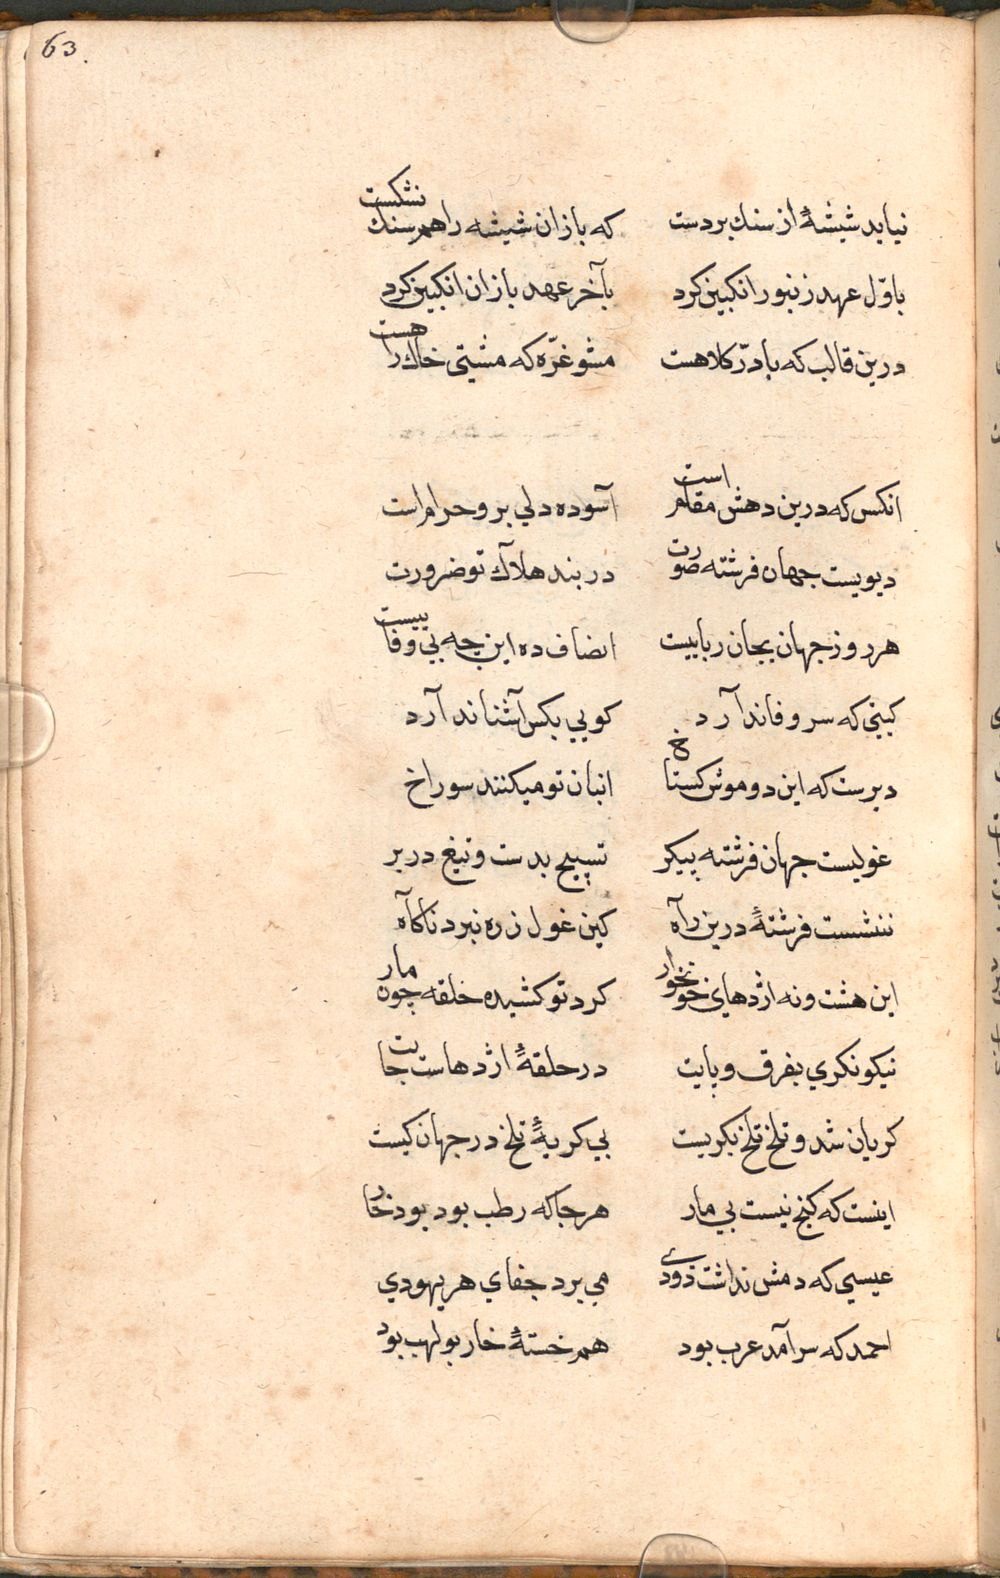 63.
نیابد شیشهٔ از سنك بردست که بازان شیشه را هم سنك نشکست
باوّل عهد زنبور انکبین کرد بآخر عهد بازان انکبین کرد
درین قالب که بادرّ کلاهست مشو غرّه که مشتی خاك را هست
انکس که درین دهش مقام است آسوده دلي برو حرام است
دیویست جهان فرشته صورت در بند هلاك تو ضرورت
هر روز جهان بجان رباییست انصاف ده این چه بي وفاییست
کیتی که سر وفا ندآرد کویي بکس آشنا ندآرد
دیرست که این دو موش کستاخ انبان تو میکنند سوراخ
غولیست جهان فرشته پیکر تسبیح بدست و تیغ در بر
ننشست فرشتهٔ درین رآه کین غول زره نبرد ناکآه
این هشت و نه اژدهای خونخوار کرد تو کشیده حلقه چون مار
نیکو نکري بفرق و پایت در حلقهٔ اژدهاست جایت
کریان شد و تلخ تلخ بکریست بي کریهٔ تلخ در جهان کیست
اینست که کنج نیست بي مار هر جا که رطب بود بود خار
عیسي که دمش نداشت دودي مي برد جفاي هر یهودي
احمد که سرآمد عرب بود هم خستهٔ خار بولهب بود